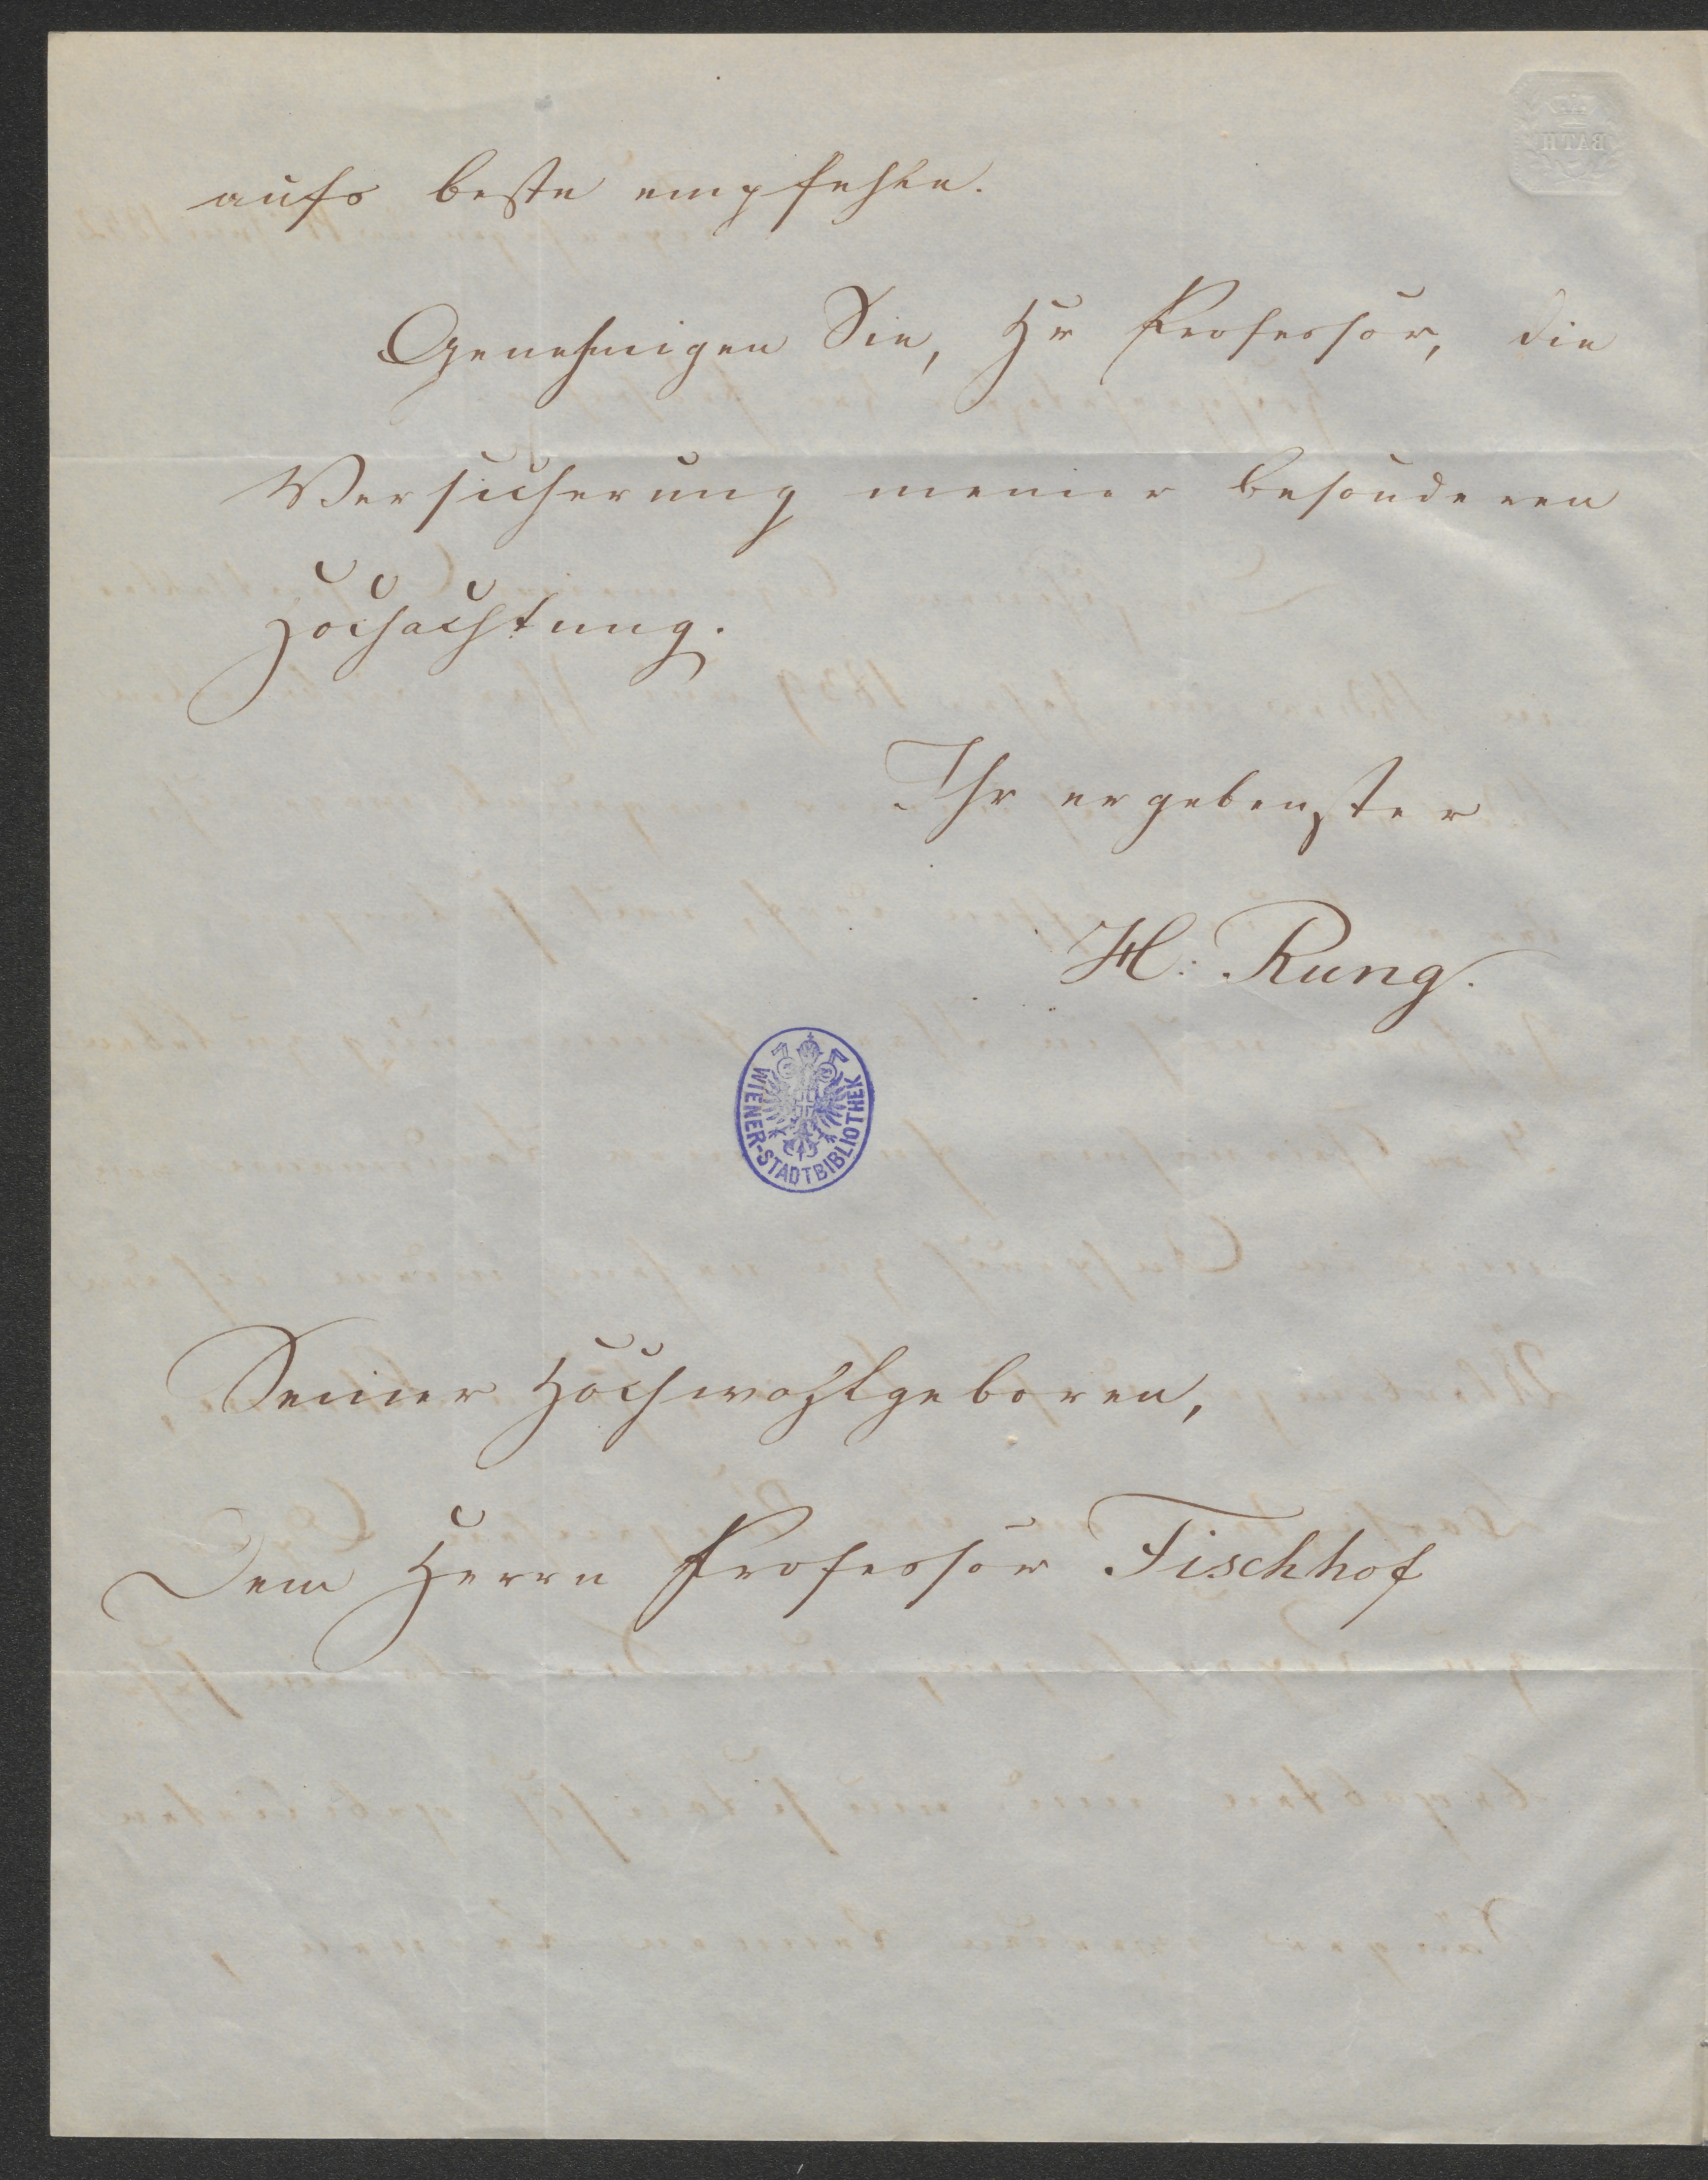 aufs beste empfehle.
Genehmigen Sie, Hr Professor, die
Versicherung meiner besonderen
Hochachtung.
Ihr ergebenster
H. Rung.
WIENER-STADTBIBLIOTHEK
Seiner Hochwohlgeboren,
Dem Herrn Professor Fischhof
BATH